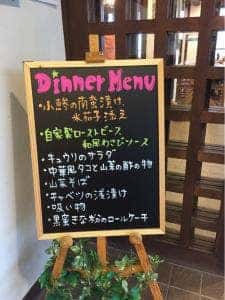 Dinner Menu
・小鯵の南蛮漬け
水茄子添え
・自家製ローストビーフ
和風わさびソース
・キュウリのサラダ
・中華風タコと山菜の酢の物
・山菜そば
・キャベツの浅漬け
・吸い物
・黒蜜きな粉のロールケーキ